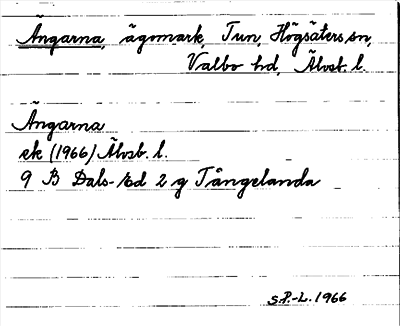 Ängarna, ägomark, Tun, Högsäters sn,
Valbo hd, Älvsb. l.
Ängarna
ek (1966) Älvsb. l.
9 B Dals-Ed 2 g Tångelanda
S.P.-L. 1966